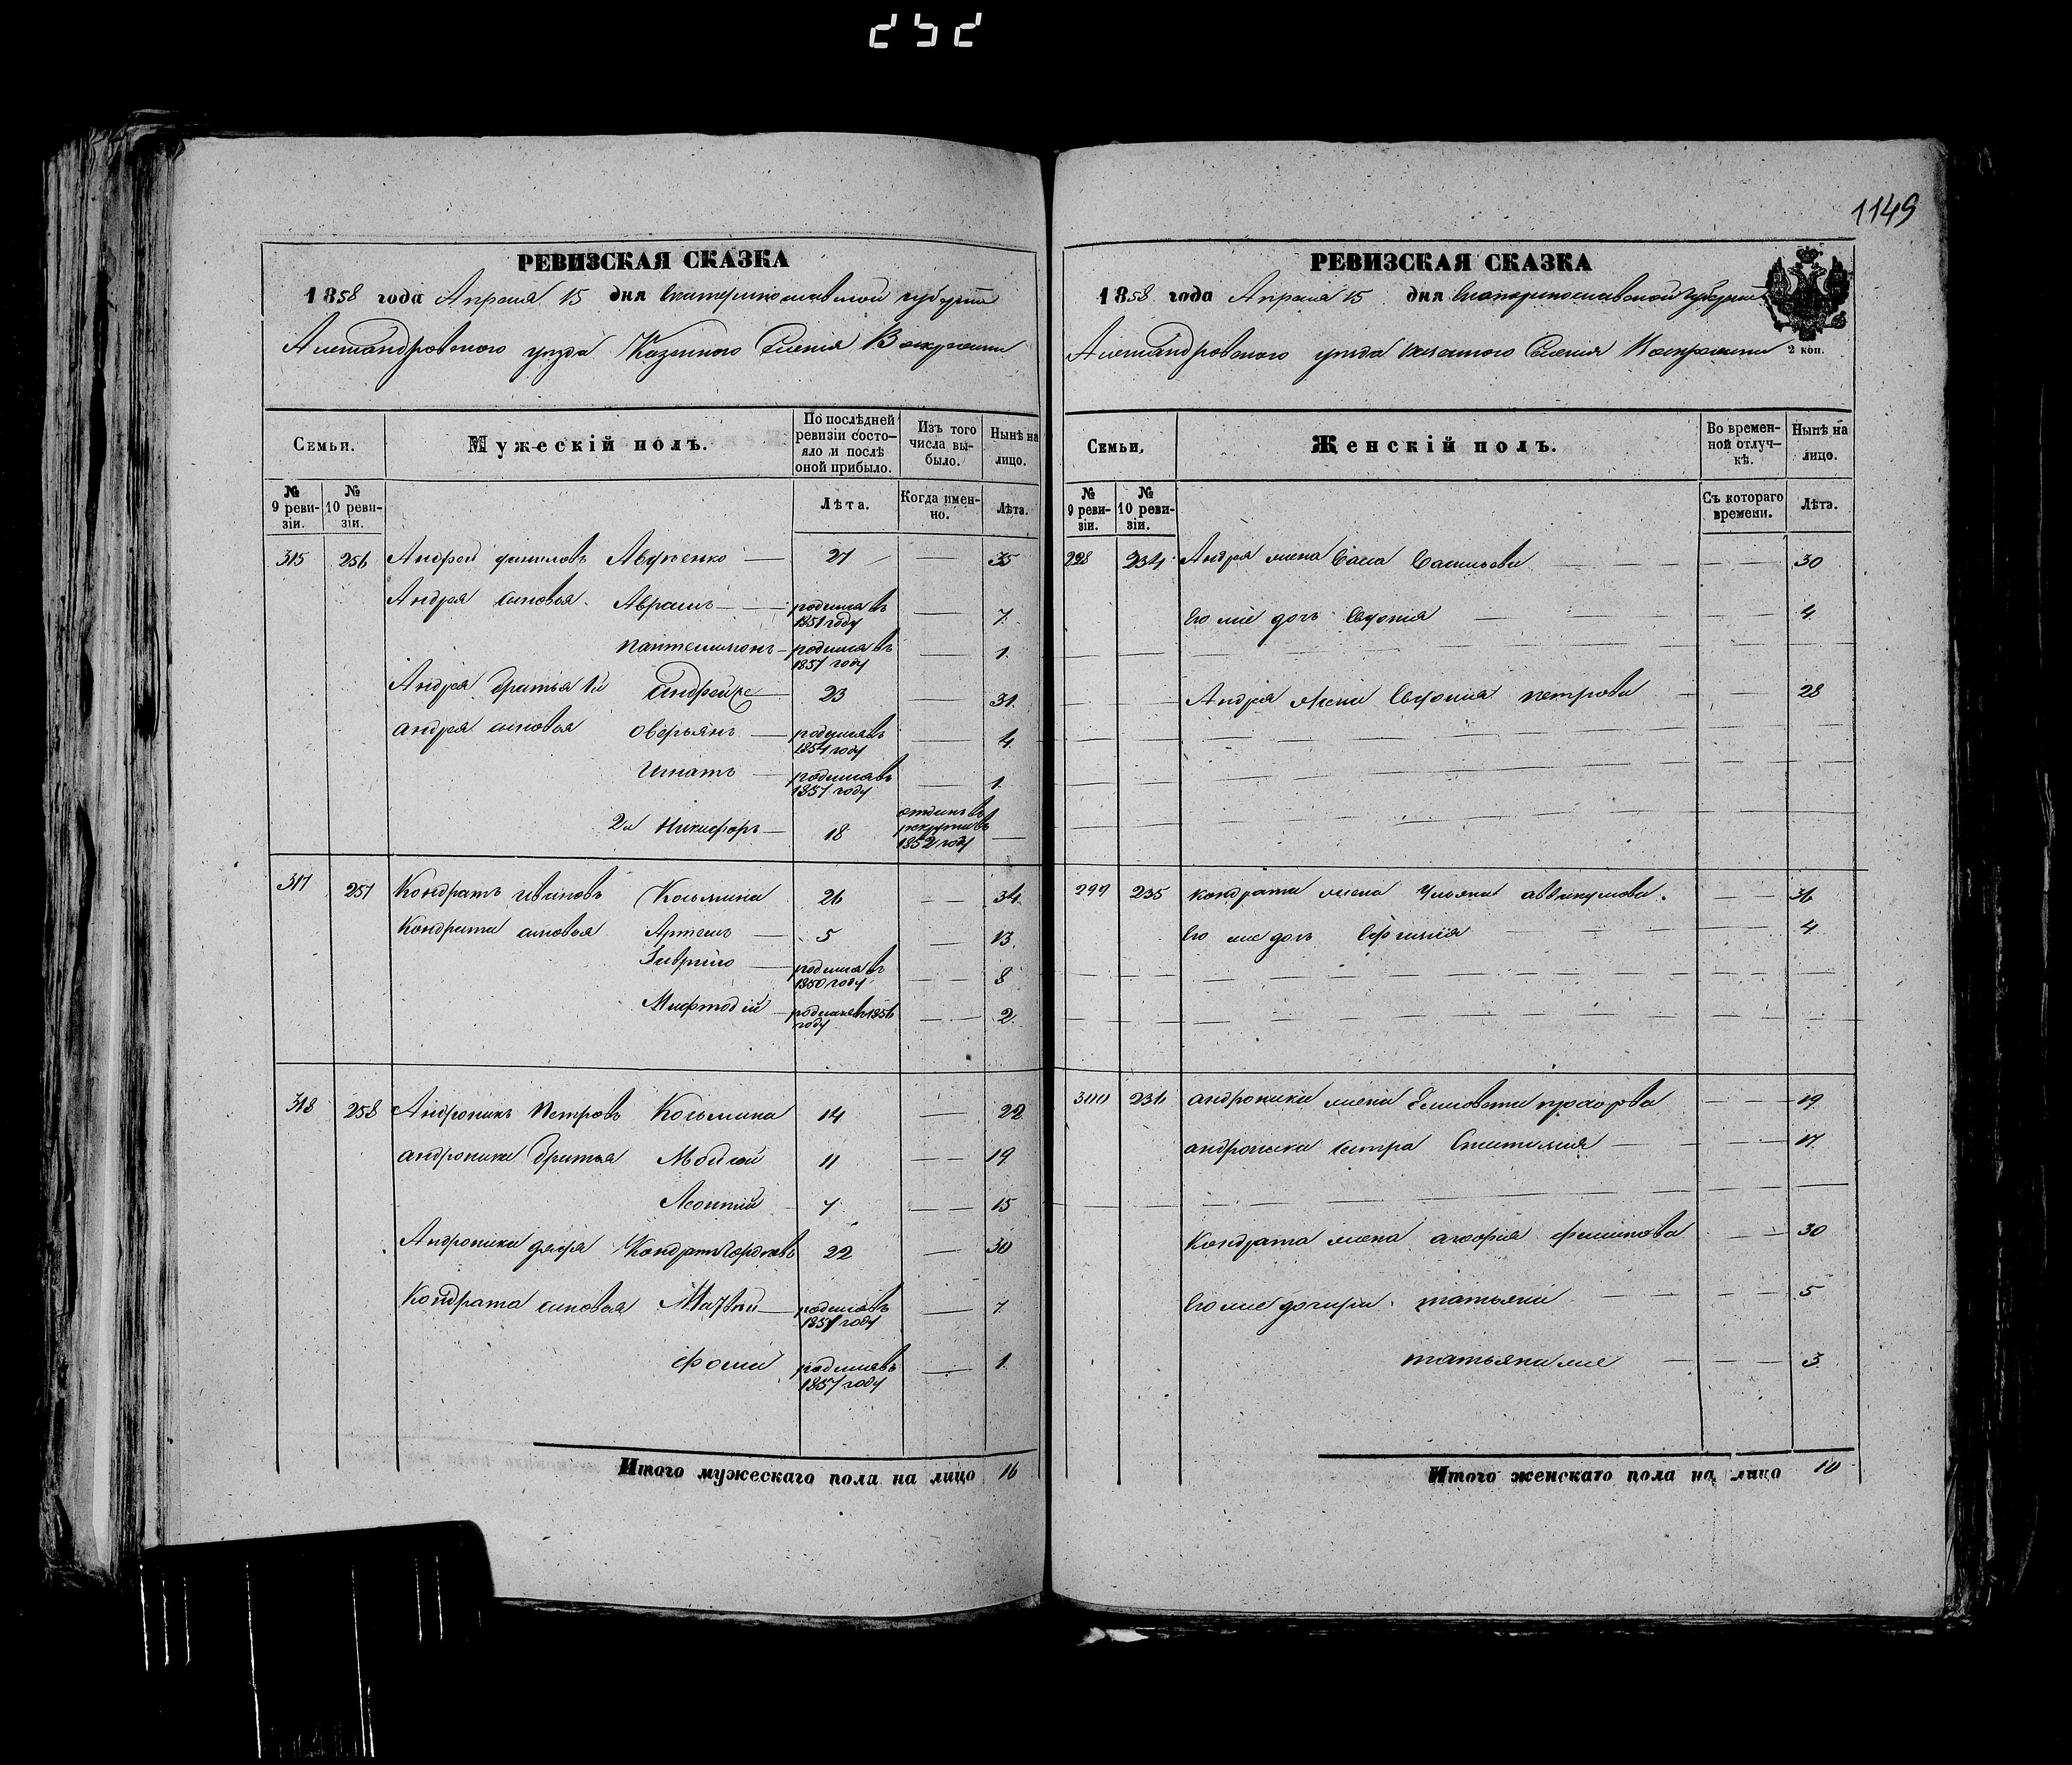 252
1149
РЕВИЗСКАЯ СКАЗКА
1858 года Апреля 15 дня Екатеринославской губернии
Александровского уезда Казенного Селения Воскресенки
Семьи. Мужескій полъ. По послѣдней ревизіи состо-яло и послѣ оной прибыло. Изъ того числа вы-было. Нынѣ на лицо.
№ 9 реви-зіи. № 10 реви-зіи. Лѣта. Когда имен-но. Лѣта.
315 256 Андрей Авдѣенко 27 35
Андрея сыновья Аврамъ родился въ 1851 году 7
Пантелимонъ родился въ 1857 году 1
Андрея братья 1й Андрей 23 31
Андрея сыновья Оверьянъ родился въ 1854 году 4
Игнатъ родился въ 1857 году 1
2й Никифоръ 18 отданъ въ рекруты въ 1852 году
317 257 Кондратъ Ивановъ Косьмина 26 34
Кондрата сыновья Артемъ 5 13
Гаврило родился въ 1850 году 8
Мифтодій родился въ 1856 году 2
318 258 Андроникъ Петровъ Косьмина 14 22
Андроника братья 11 19
Леонтій 7 15
Андроника дядя Кондратъ 22 30
Кондрата сыновья Матвѣй родился въ 1851 году 7
Фома родился въ 1857 году 1
Итого мужескаго пола на лицо 16
РЕВИЗСКАЯ СКАЗКА
1858 года Апреля 15 дня Екатеринославской Губернии
Александровского уезда казенного Селения Воскресенки
2 коп.
Семьи. Женскій полъ. Во времен-ной отлуч-кѣ. Нынѣ на лицо.
№ 9 реви-зіи. № 10 реви-зіи. Съ котораго времени. Лѣта.
298 234 Андрея жена Васильева 30
Его же дочь Евдокія 4
Андрея жена Евдокія Петрова 28
299 235 Кондрата жена Ульяна Аввакумова 36
Его же дочь Ефимія 4
300 236 Андроника жена Елисовета Прохорова 19
Андроника сестра 17
Кондрата жена Агафія Филипова 30
Его же дочери Татьяна 5
Татьяна же 3
Итого женскаго пола на лицо 10